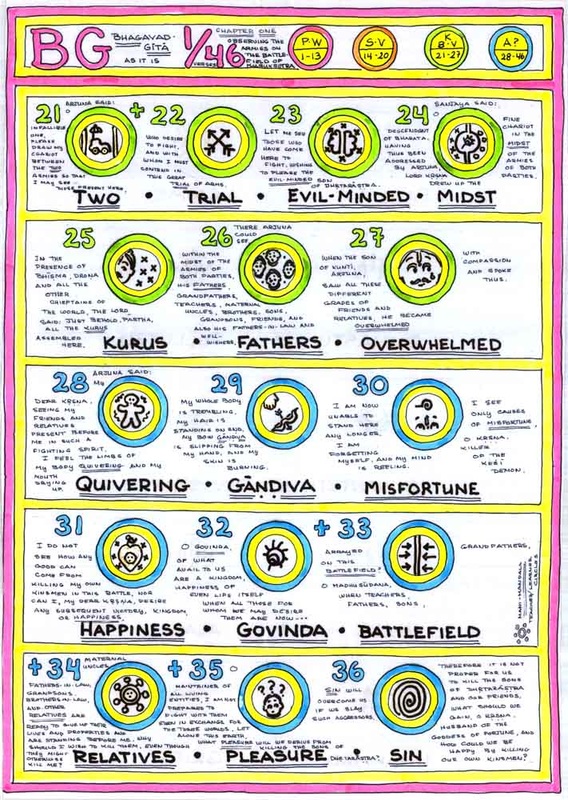 BG
BHAGAVAD-
GĪTĀ
AS IT IS
1/46
VERSES
CHAPTER ONE
OBSERVING THE
ARMIES ON
THE BATTLE-
FIELD OF
KURUKṢETRA
P.W
1-13
S.V
14-20
K
B-V
21-27
A?
28-46
21
ARJUNA SAID:
INFALLIBLE
ONE,
PLEASE
DRAW MY
CHARIOT
BETWEEN
THE TWO
ARMIES SO THAT
I MAY SEE
THOSE PRESENT HERE,
+ 22
WHO DESIRE
TO FIGHT,
AND WITH
WHOM I MUST
CONTEND IN
THIS GREAT
TRIAL OF ARMS.
23
LET ME SEE
THOSE WHO
HAVE COME
HERE TO
FIGHT, WISHING
TO PLEASE THE
EVIL-MINDED SON
OF DHṚTARĀṢṬRA.
24
SAÑJAYA SAID:
DESCENDANT
OF BHARATA,
HAVING THUS
BEEN
ADDRESSED
BY ARJUNA,
LORD KṚṢṆA
DREW UP THE
FINE
CHARIOT
IN THE
MIDST
OF THE
ARMIES
OF BOTH
PARTIES.
TWO • TRIAL • EVIL-MINDED • MIDST
25
IN THE
PRESENCE OF
BHĪṢMA, DROṆA
AND ALL THE
OTHER
CHIEFTAINS OF
THE WORLD, THE LORD
SAID: JUST BEHOLD, PĀRTHA,
ALL THE KURUS
ASSEMBLED
HERE.
26
THERE ARJUNA
COULD
SEE
WITHIN THE
MIDST OF THE
ARMIES OF
BOTH PARTIES,
HIS FATHERS
GRANDFATHERS,
TEACHERS, MATERNAL
UNCLES, BROTHERS, SONS,
GRANDSONS, FRIENDS, AND
ALSO HIS FATHERS-IN-LAW AND
WELL-
WISHERS.
27
WHEN THE SON
OF KUNTĪ,
ARJUNA,
SAW ALL THESE
DIFFERENT
GRADES OF
FRIENDS AND
RELATIVES, HE BECAME
OVERWHELMED
WITH
COMPASSION
AND SPOKE
THUS.
KURUS • FATHERS • OVERWHELMED
28
ARJUNA SAID:
MY
DEAR KṚṢṆA,
SEEING MY
FRIENDS AND
RELATIVES
PRESENT BEFORE
ME IN SUCH A
FIGHTING SPIRIT,
I FEEL THE LIMBS OF
MY BODY QUIVERING AND MY
MOUTH
DRYING
UP.
29
MY WHOLE BODY
IS TREMBLING,
MY HAIR IS
STANDING ON END,
MY BOW GĀṆḌIVA
IS SLIPPING FROM
MY HAND, AND MY
SKIN IS
BURNING.
30
I AM NOW
UNABLE TO
STAND HERE
ANY LONGER.
I AM
FORGETTING
MYSELF, AND MY MIND
IS REELING.
I SEE
ONLY CAUSES
OF MISFORTUNE,
O KṚṢṆA,
KILLER
OF THE
KEŚĪ
DEMON.
QUIVERING • GĀṆḌIVA • MISFORTUNE
31
I DO NOT
SEE HOW ANY
GOOD CAN
COME FROM
KILLING MY OWN
KINSMEN IN THIS BATTLE, NOR
CAN I, MY DEAR KṚṢṆA, DESIRE
ANY SUBSEQUENT VICTORY, KINGDOM,
OR HAPPINESS.
32
O GOVINDA,
OF WHAT
AVAIL TO US
ARE A KINGDOM,
HAPPINESS OR
EVEN LIFE ITSELF
WHEN ALL THOSE FOR
WHOM WE MAY DESIRE
THEM ARE NOW...
+ 33
ARRAYED
ON THIS
BATTLEFIELD?
O MADHUSŪDANA,
WHEN TEACHERS,
FATHERS, SONS,
GRANDFATHERS,
HAPPINESS • GOVINDA • BATTLEFIELD
+34
MATERNAL
UNCLES,
FATHERS-IN-LAW,
GRANDSONS,
BROTHERS-IN-LAW
AND OTHER
RELATIVES ARE
READY TO GIVE UP THEIR
LIVES AND PROPERTIES AND
ARE STANDING BEFORE ME, WHY
SHOULD I WISH TO KILL THEM, EVEN THOUGH
THEY MIGHT
OTHERWISE
KILL ME?
+35
O
MAINTAINER OF
ALL LIVING
ENTITIES, I AM NOT
PREPARED TO
FIGHT WITH THEM
EVEN IN EXCHANGE FOR
THE THREE WORLDS, LET
ALONE THIS EARTH.
WHAT PLEASURE WILL WE DERIVE FROM
KILLING THE SONS OF
DHṚTARĀṢṬRA?
36
SIN WILL
OVERCOME US
IF WE SLAY
SUCH AGGRESSORS.
THEREFORE IT IS NOT
PROPER FOR US
TO KILL THE SONS
OF DHṚTARĀṢṬRA
AND OUR FRIENDS.
WHAT SHOULD WE
GAIN, O KṚṢṆA,
HUSBAND OF THE
GODDESS OF FORTUNE, AND
HOW COULD WE BE
HAPPY BY KILLING
OUR OWN KINSMEN?
RELATIVES • PLEASURE • SIN